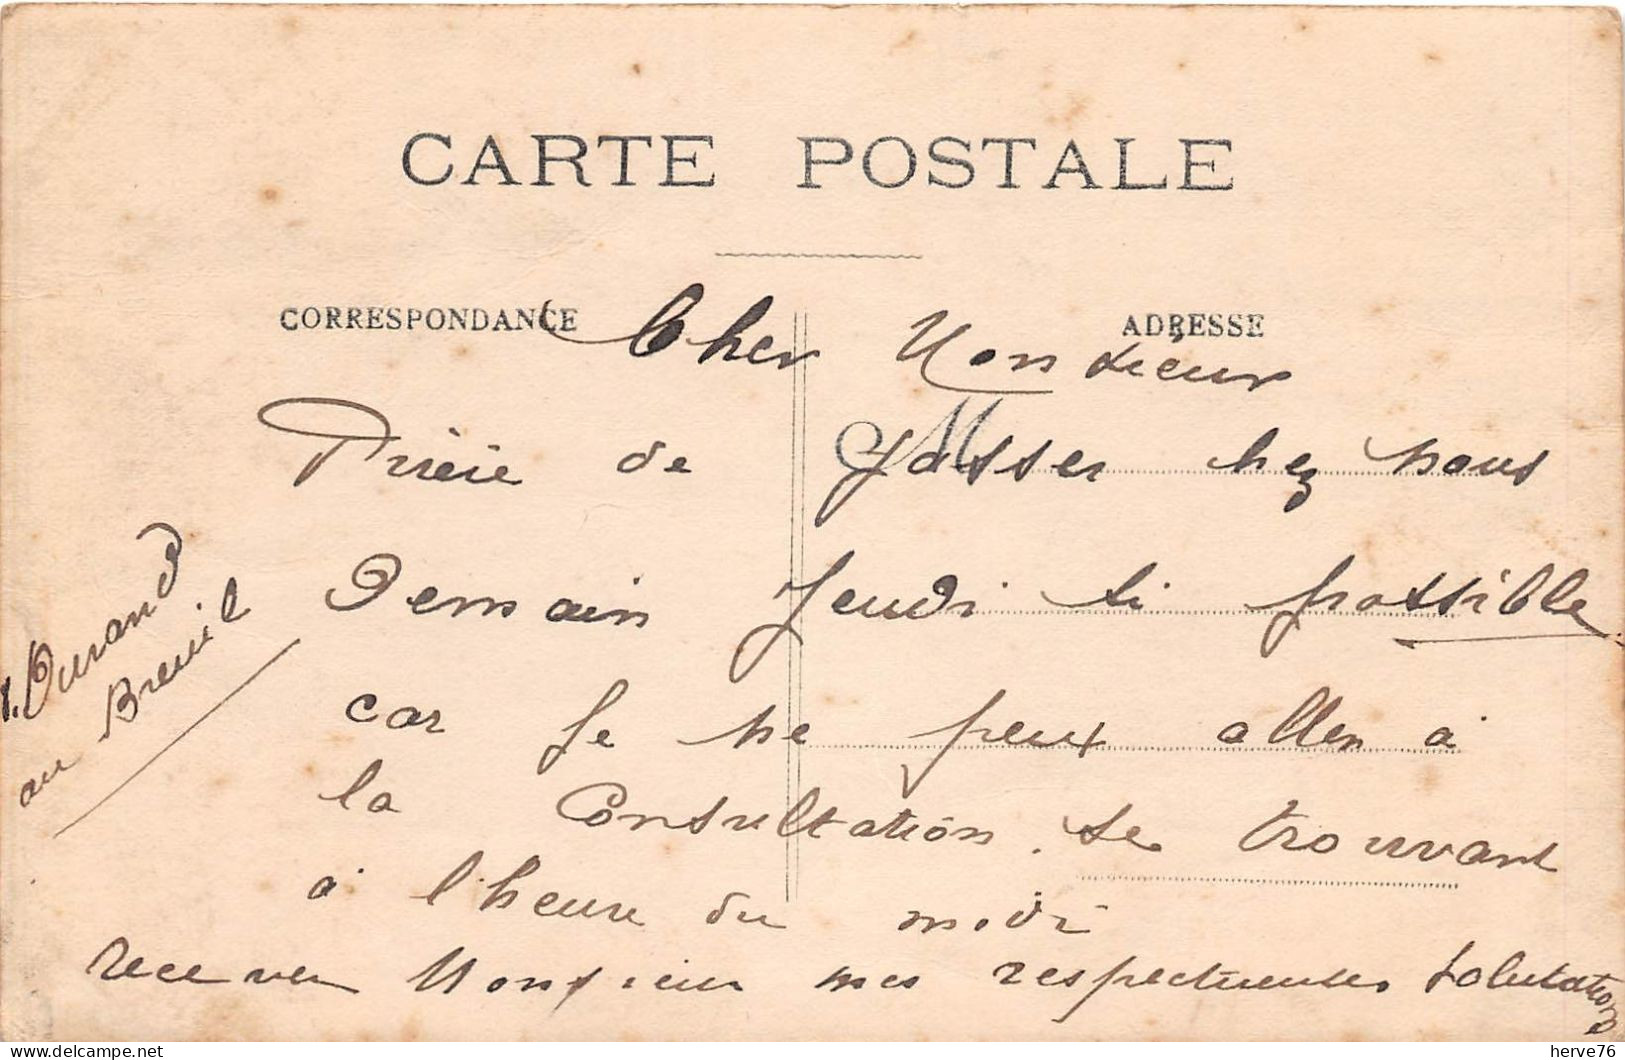 CARTE POSTALE
CORRESPONDANCE ADRESSE
Cher Monsieur
Prière de passer chez nous
Demain Jeudi si possible
car Je ne peux aller à
la Consultation se trouvant
à l'heure du midi
recever Monsieur mes respectueuses Salutations
Durand
au Breuil
delcampe.net
herve76